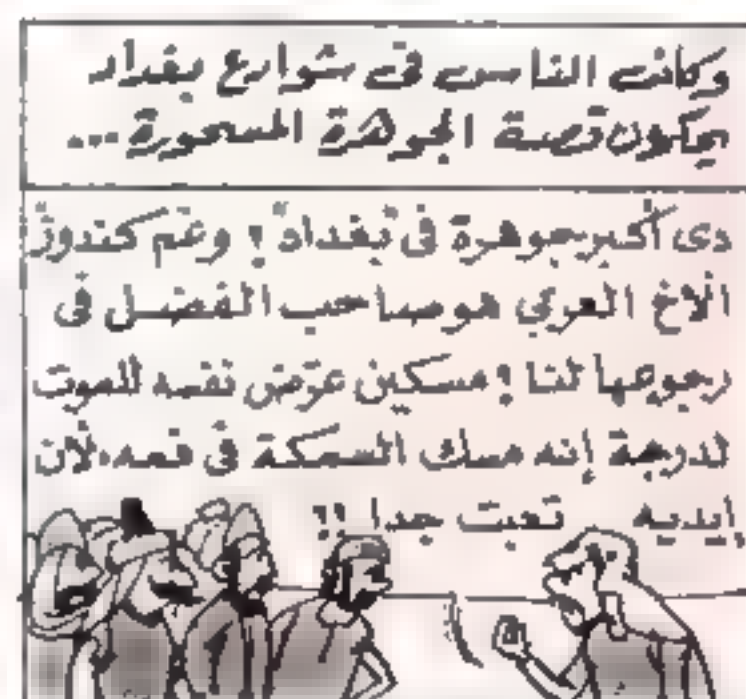 وكانت الناس فى شوارع بغداد
يحكون قصة الجوهرة المسحورة ...
دى أكبر جوهرة فى بغداد ! وعم كندوز
الأخ العربي هو صاحب الفضل فى
رجوعها لنا ! مسكين عرّض نفسه للموت
لدرجة إنه مسك السمكة فى فمه لأن
إيديه تعبت جدا !!